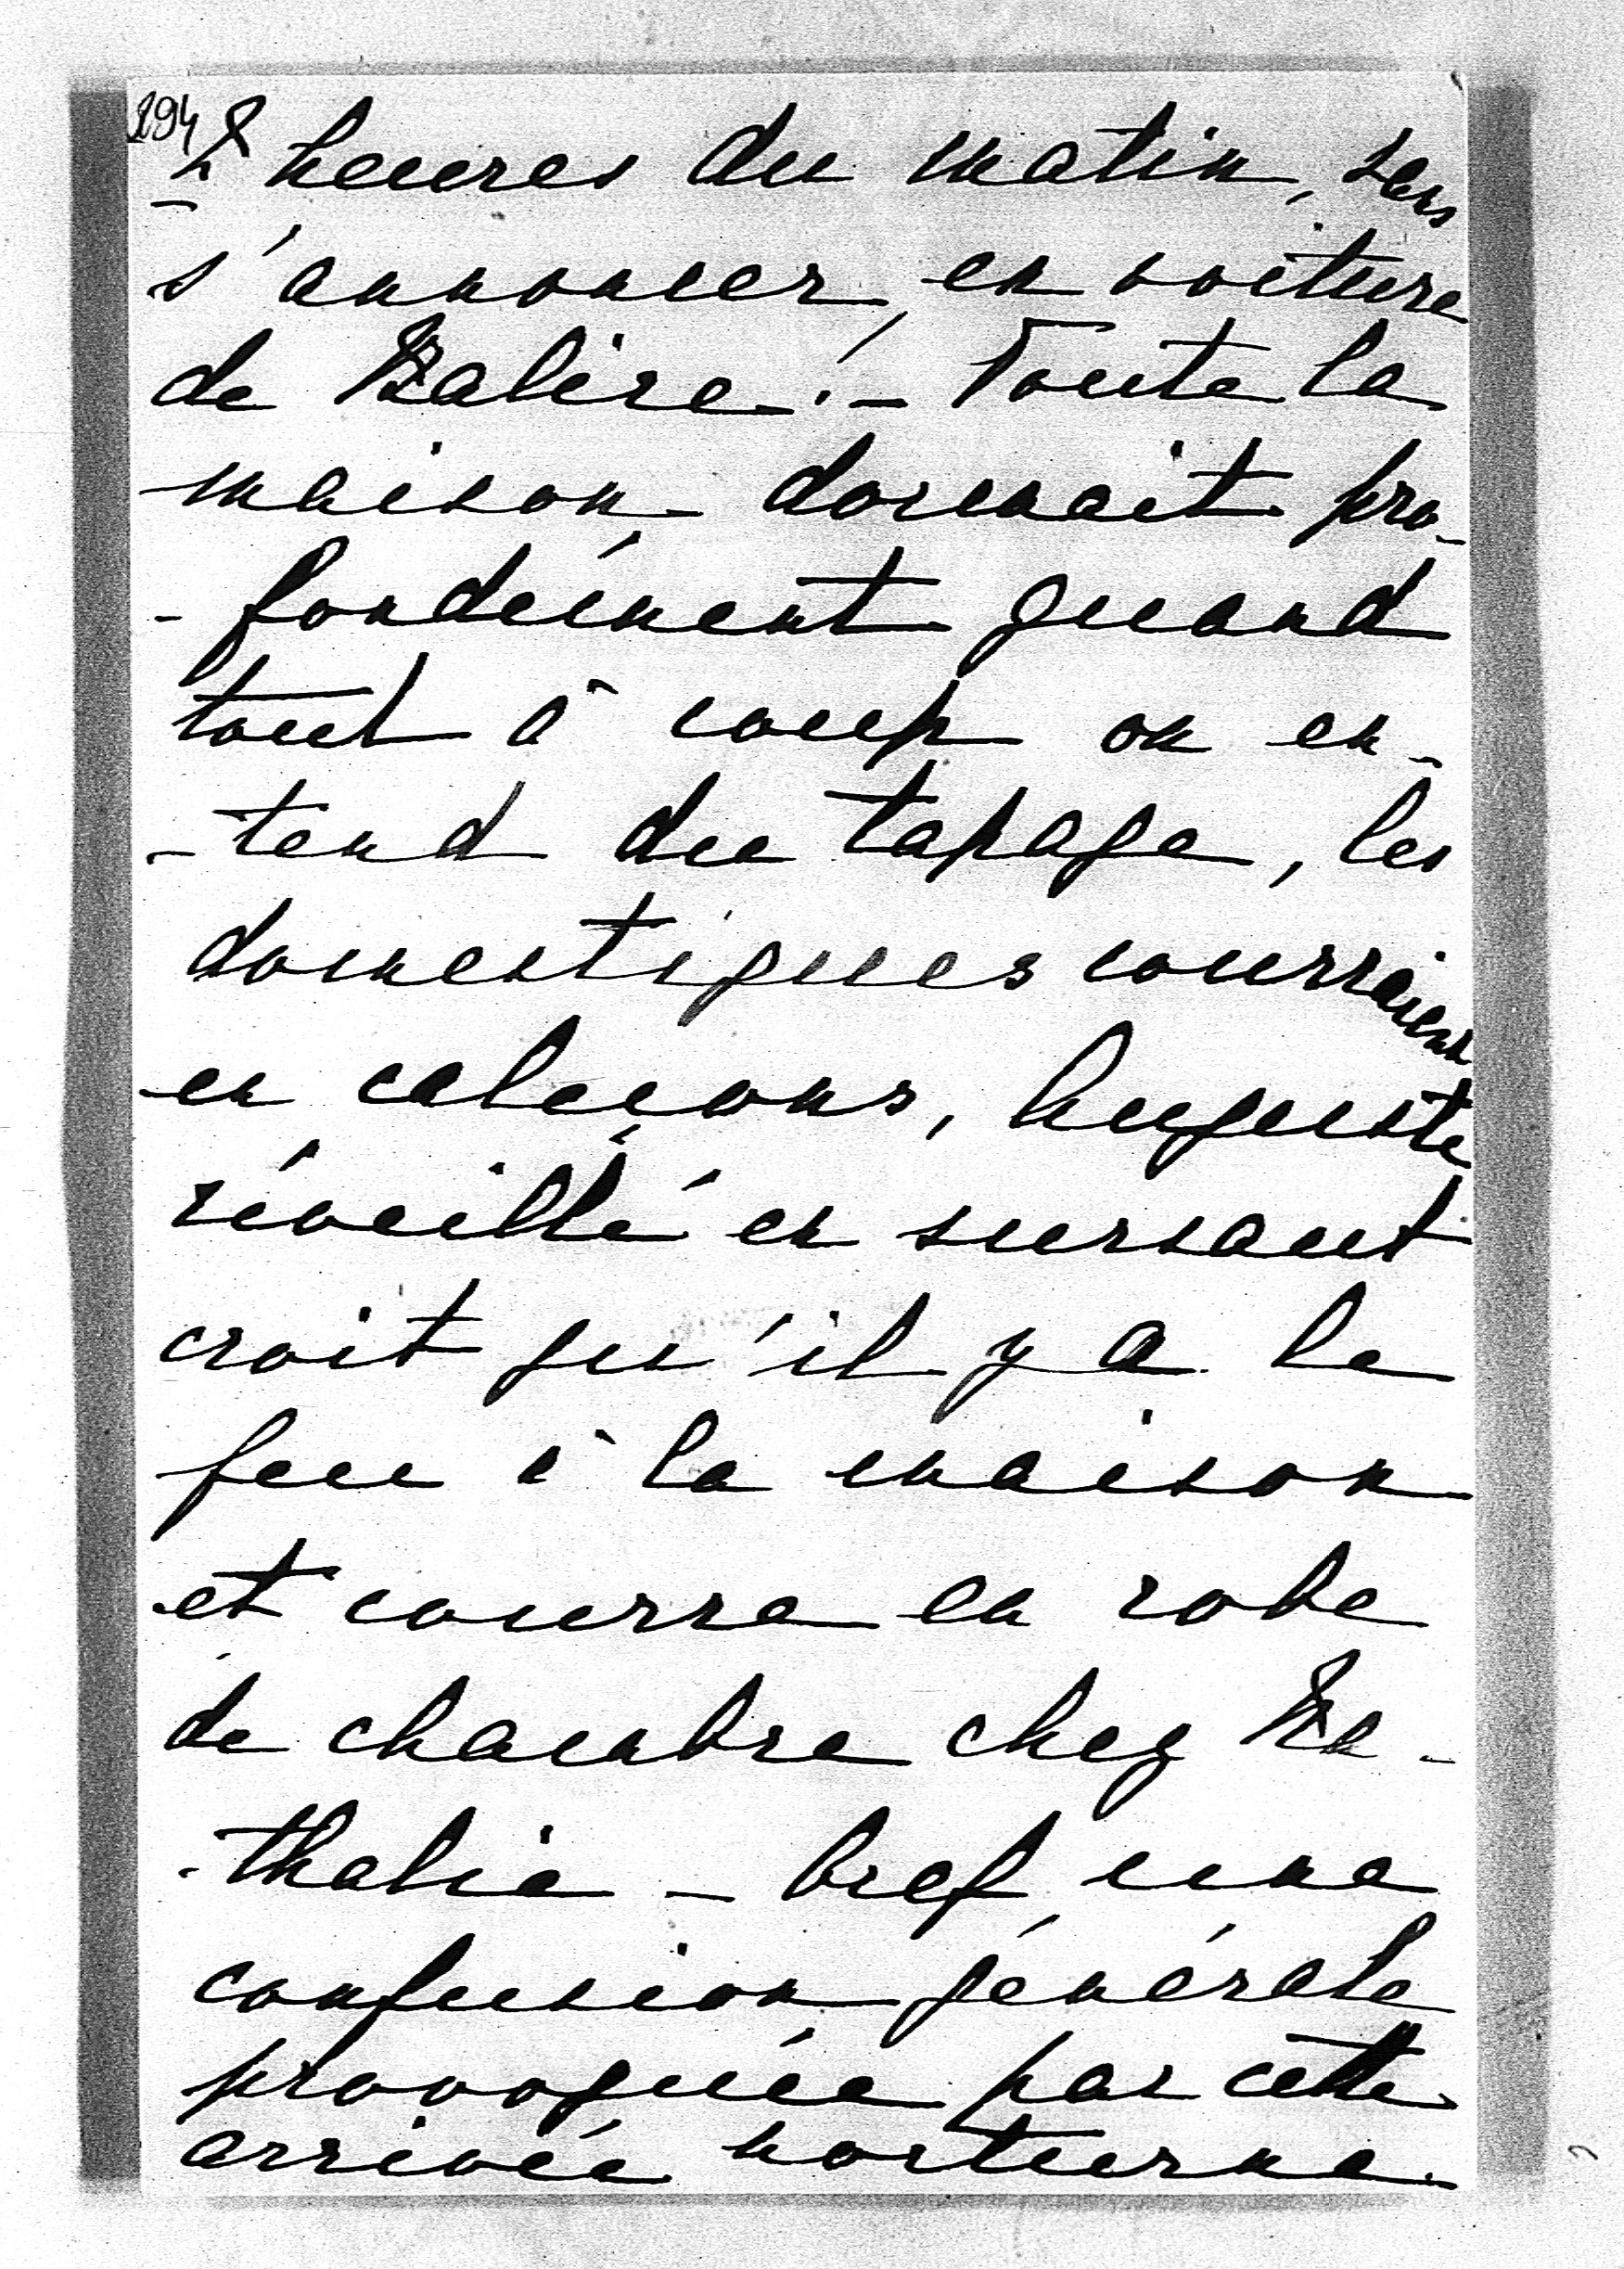 294
2 heures du matin, sans
s'annoncer, en voiture
de Kalise! - Toute la
maison dormait pro-
-fondément quand
tout à coup on en-
-tend du tapage, les
domestiques courraient
en caleçons, Auguste
réveillé en sursaut
croit qu'il y a le
feu à la maison
et courre en robe
de chambre chez
-thalie - bref une
confusion générale
provoquée par cette
arrivée nocturne.